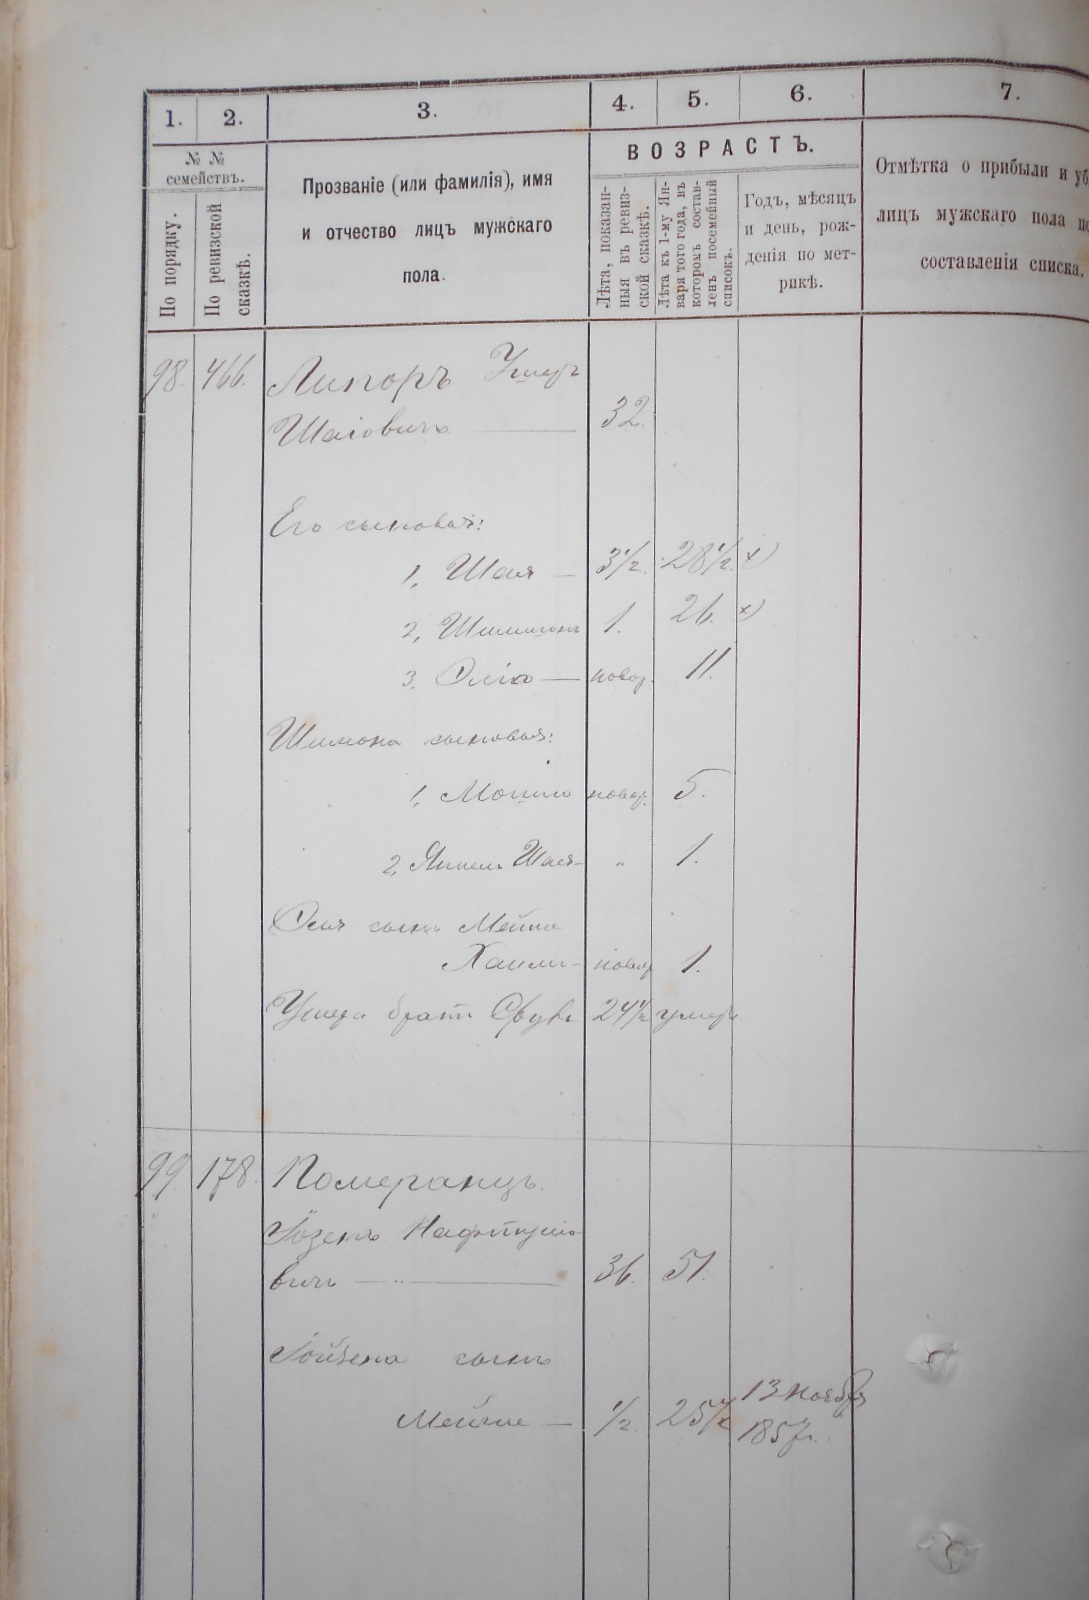 1. 2. 3. 4. 5. 6. 7.
№ №
семействъ.
По порядку.
По ревизской
сказкѣ.
Прозваніе (или фамилія), имя
и отчество лицъ мужскаго
пола.
ВОЗРАСТЪ.
Лѣта, показан-
ныя въ ревиз-
ской сказкѣ.
Лѣта къ 1-му Ян-
варя того года, въ
которомъ состав-
ленъ посемейный
списокъ.
Годъ, мѣсяцъ
и день, рож-
денія по мет-
рикѣ.
Отмѣтка о прибыли и уб
лицъ мужскаго пола по
составленія списка.
98. 466. Липоръ
Шаіовичъ 32.
Его сыновья:
1, Шая — 3½. 28½. х)
2, Шимшонъ 1. 26. х)
3, — новор. 11.
Шимона сыновья:
1, Мошко новор. 5.
2, Янкель Шая- " 1.
сынъ
Хаимъ- новор 1.
братъ 24½ умеръ
99. 178. Померанцъ.
вичъ — 36. 51.
Іойзена сынъ
Мейше — ½. 25½ 13 Ноября
1857г.